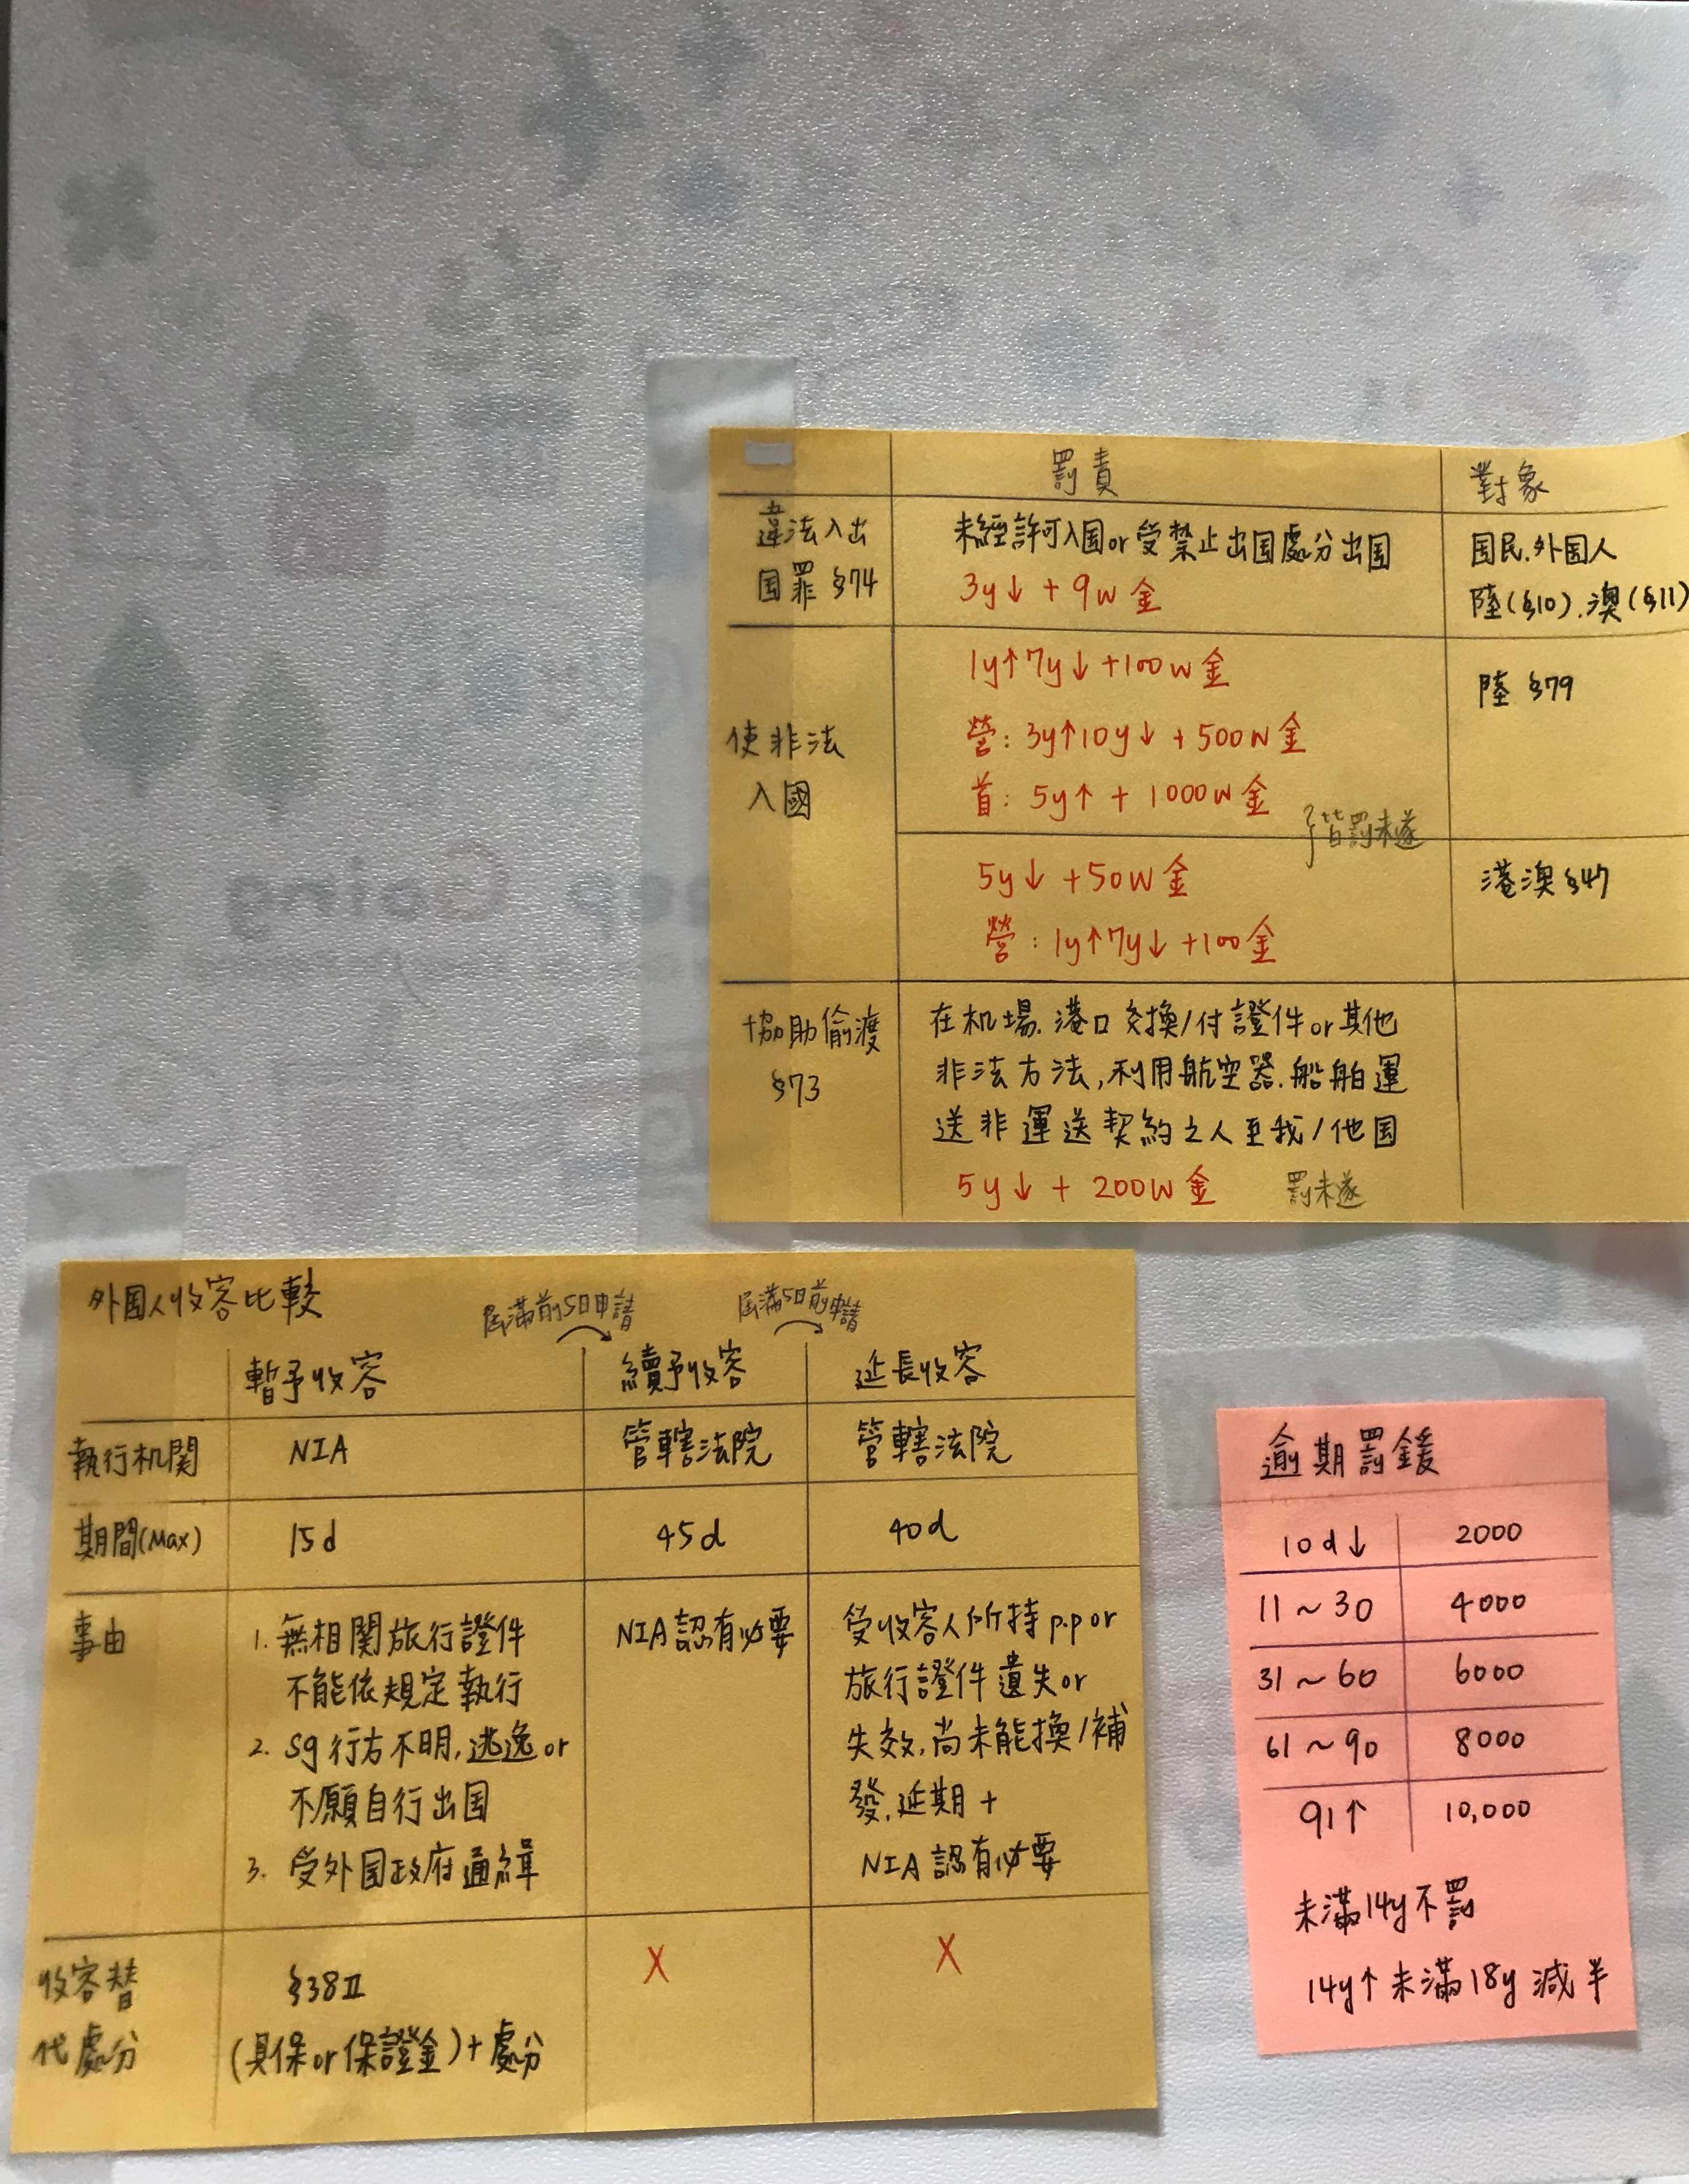 罰責 對象
違法入出
国罪 §74
未經許可入国or受禁止出国處分出国
3y↓ + 9w金
国民.外国人
陸(§10).澳(§11)
使非法
入國
1y↑7y↓ +100w金
營: 3y↑10y↓ + 500W金
首: 5y↑ + 1000W金
陸 §79
皆罰未遂
5y↓ +50W金
營: 1y↑7y↓ +100金
港澳 §47
協助偷渡
§73
在机場.港口交換/付證件or其他
非法方法,利用航空器.船舶運
送非運送契約之人至我/他国
5y↓ + 200W金 罰未遂
外国人收容比較
屆滿前5日申請 屆滿5日前申請
暫予收容 續予收容 延長收容
執行机関 NIA 管轄法院 管轄法院
期間(Max) 15d 45d 40d
事由
1. 無相関旅行證件
不能依規定執行
2. sg行方不明,逃逸or
不願自行出国
3. 受外国政府通緝
NIA認有必要
受收容人所持p.p or
旅行證件遺失or
失效,尚未能換/補
發.延期 +
NIA認有必要
收容替
代處分
§38Ⅱ
(具保or保證金)+處分
X X
逾期罰鍰
10d↓ 2000
11~30 4000
31~60 6000
61~90 8000
91↑ 10,000
未滿14y不罰
14y↑未滿18y減半